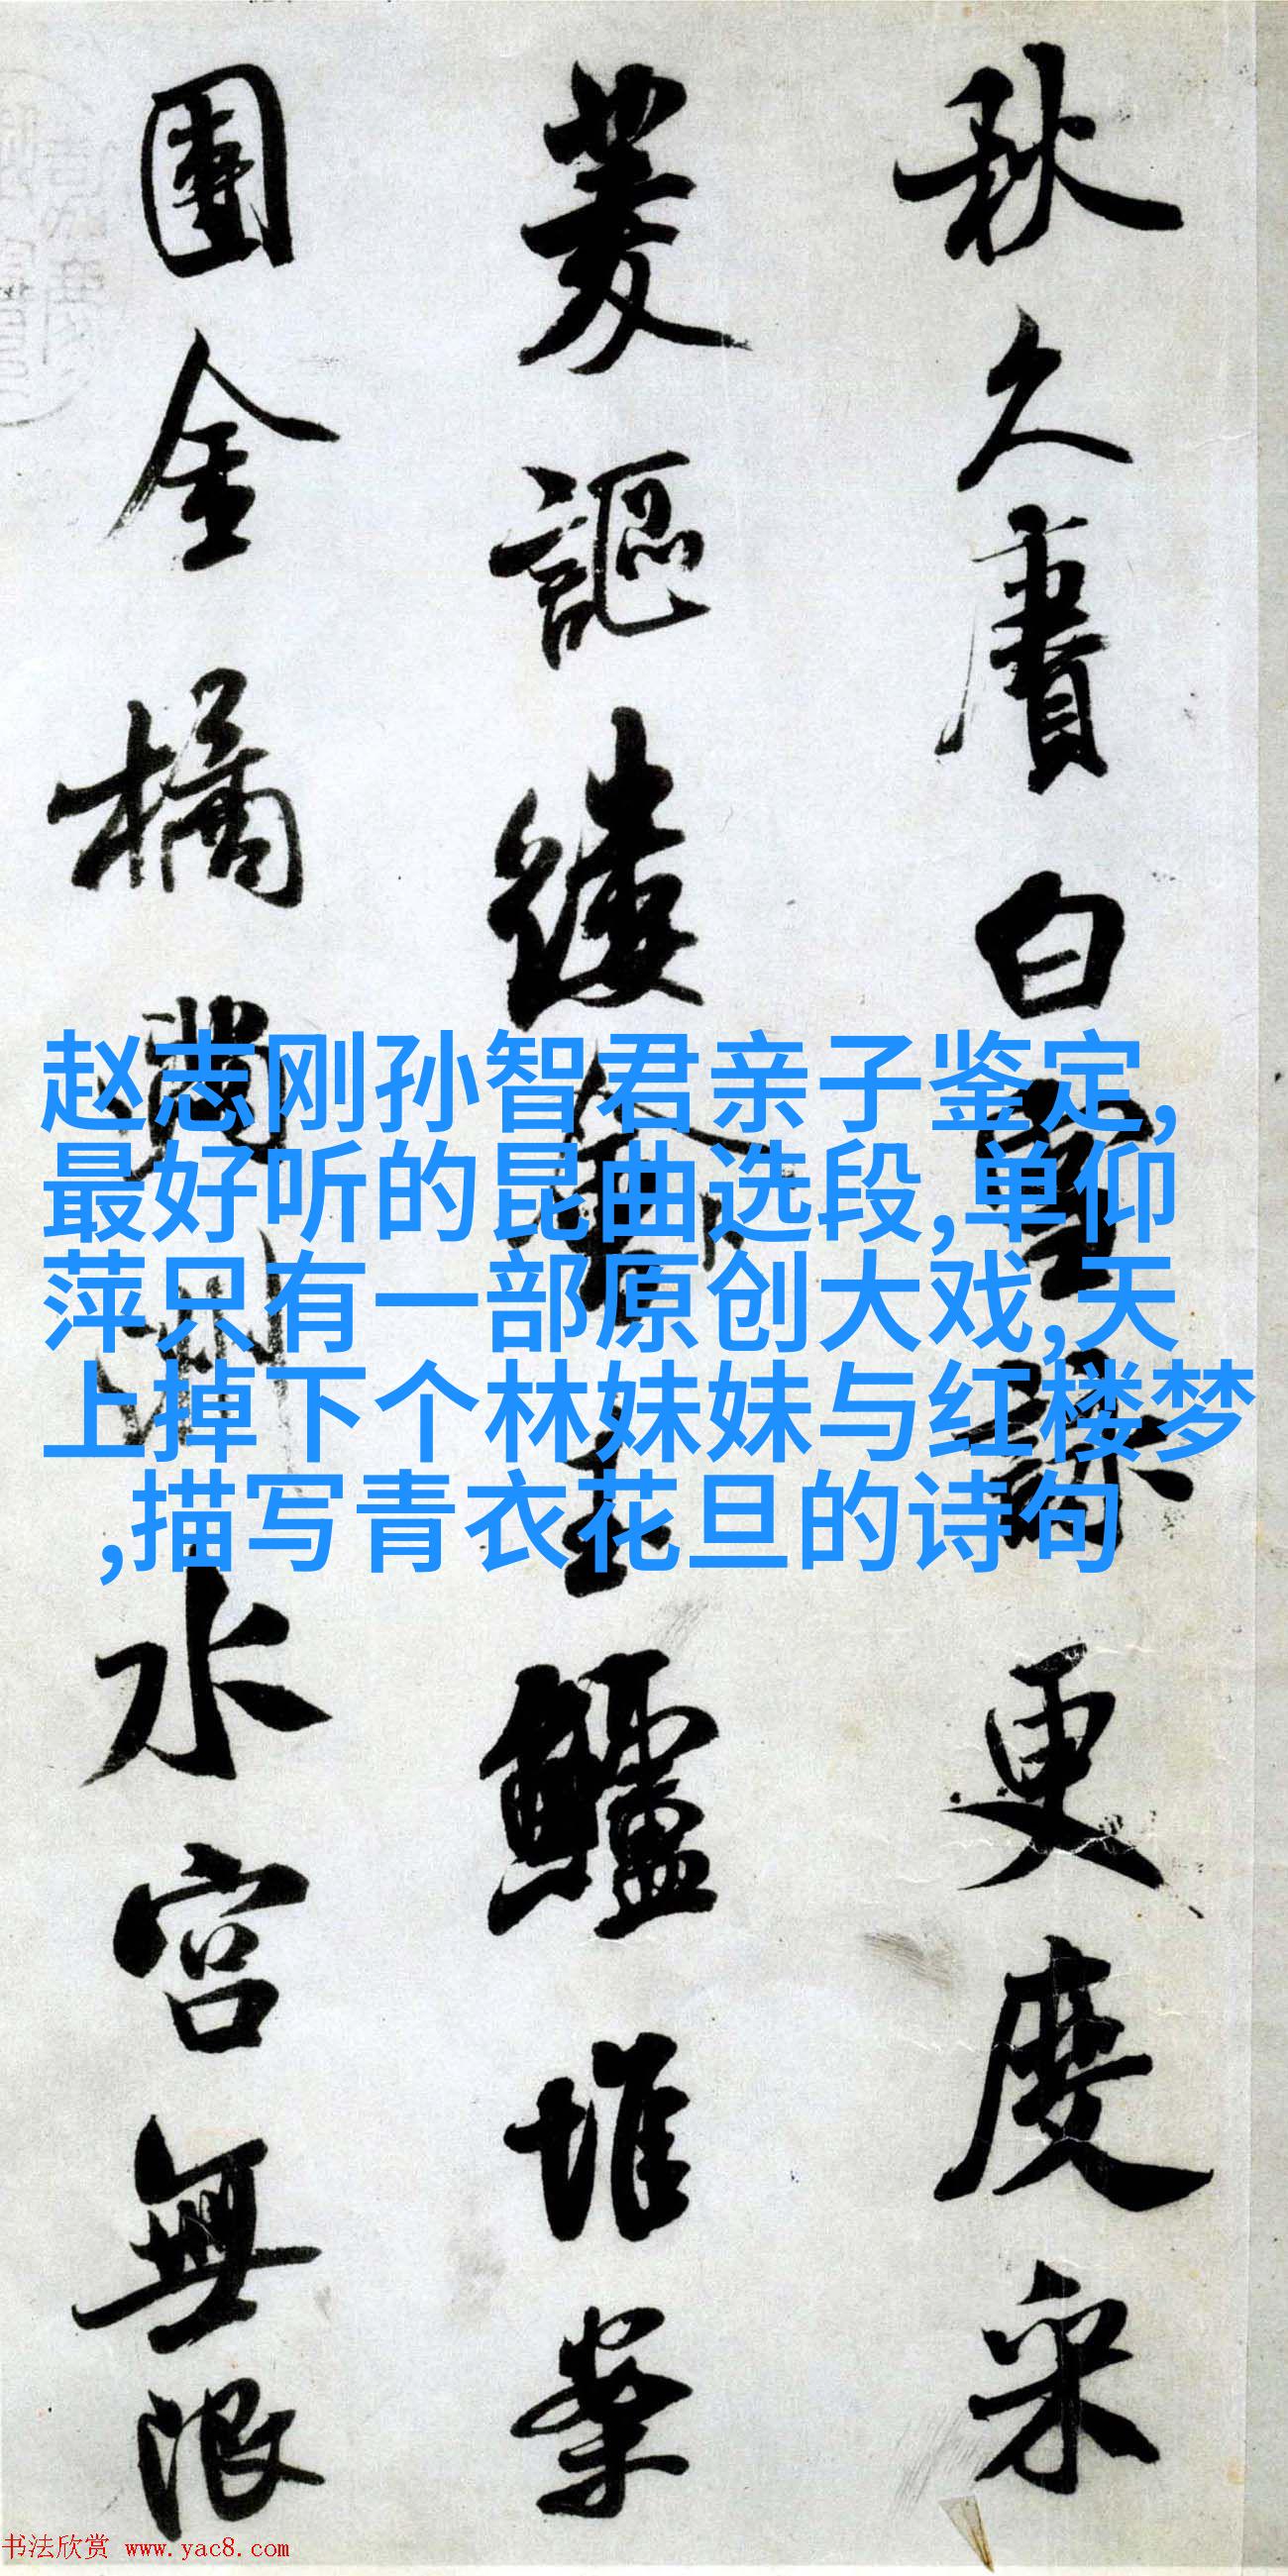 秋久賡白雪詠更度采
菱謳縷玉鱸堆案
團金橘滿洲水宮無限
赵志刚孙智君亲子鉴定,
最好听的昆曲选段,单仰
萍只有一部原创大戏,天
上掉下个林妹妹与红楼梦
,描写青衣花旦的诗句
书法欣赏 www.yac8.com